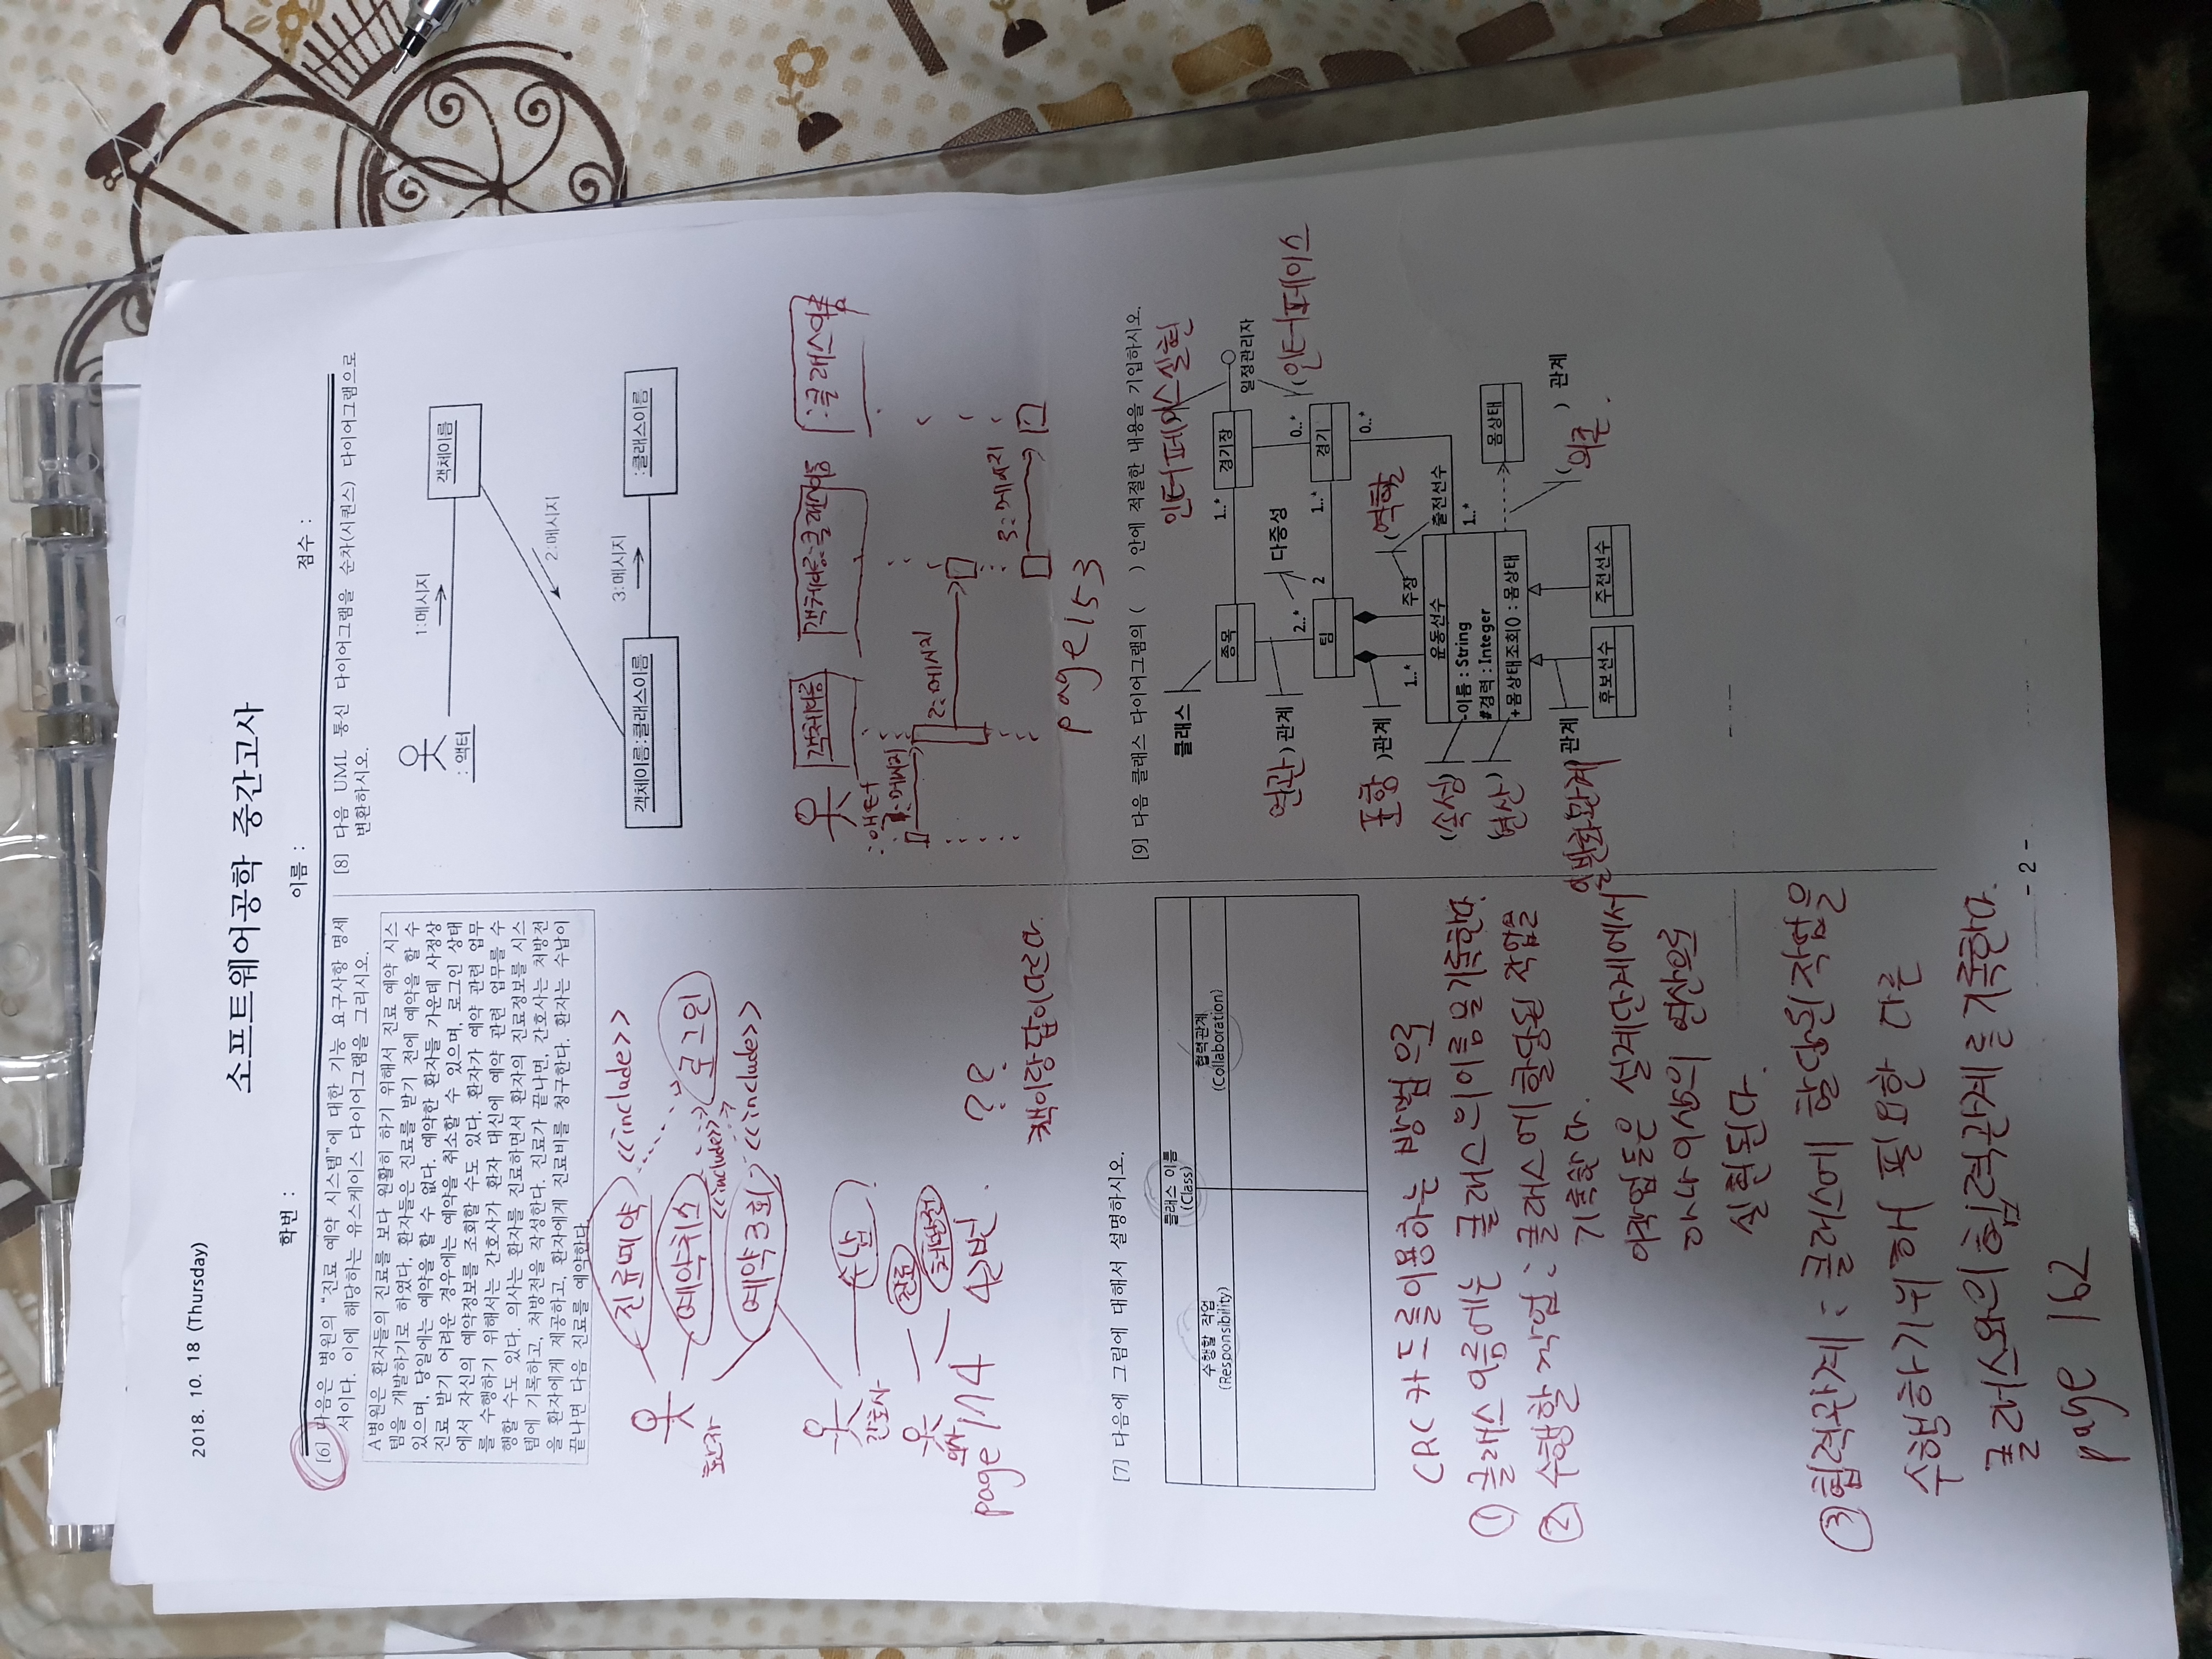 2018. 10. 18 (Thursday)
소프트웨어공학 중간고사
학번 :
이름 :
점수 :
[6] 다음은 병원의 "진료 예약 시스템"에 대한 기능 요구사항 명세
서이다. 이에 해당하는 유스케이스 다이어그램을 그리시오.
A병원은 환자들의 진료를 보다 원활히 하기 위해서 진료 예약 시스
템을 개발하기로 하였다. 환자들은 진료를 받기 전에 예약을 할 수
있으며, 당일에는 예약을 할 수 없다. 예약한 환자들 가운데 사정상
진료 받기 어려운 경우에는 예약을 취소할 수 있으며, 로그인 상태
에서 자신의 예약정보를 조회할 수도 있다. 환자가 예약 관련 업무
를 수행하기 위해서는 간호사가 환자 대신에 예약 관련 업무를 수
행할 수도 있다. 의사는 환자를 진료하면서 환자의 진료정보를 시스
템에 기록하고, 처방전을 작성한다. 진료가 끝나면, 간호사는 처방전
을 환자에게 제공하고, 환자에게 진료비를 청구한다. 환자는 수납이
끝나면 다음 진료를 예약한다.
진료예약 <<include>>
예약취소
로그인
환자
<<include>>
예약조회 <<include>>
수납
간호사
진료
처방전
의사
page 174 4번. ??
책이랑 답이 다르다.
[7] 다음에 그림에 대해서 설명하시오.
클래스 이름
(Class)
수행할 작업
(Responsibility)
협력관계
(Collaboration)
CRC 카드를 이용하는 방법으로
① 클래스 이름에는 클래스의 이름을 기록한다.
② 수행할 작업 : 클래스에 할당된 작업을
기록한다.
이작업들은 설계단계에서
하나 이상의 연산으로
실현된다.
③ 협력관계 : 클래스에 할당된 작업을
수행하기위해 필요한 다른
클래스와의 협력관계를 기록한다.
page 162
[8] 다음 UML 통신 다이어그램을 순차(시퀀스) 다이어그램으로
변환하시오.
1:메시지
객체이름
: 액터
2:메시지
3:메시지
객체이름:클래스이름
:클래스이름
객체이름
객체이름:클래스이름
:클래스이름
:액터
1:메시지
2:메시지
3:메시지
page 153
[9] 다음 클래스 다이어그램의 ( ) 안에 적절한 내용을 기입하시오.
인터페이스실현
클래스
종목
1..*
경기장
일정관리자
연관 ) 관계
다중성
2..*
0..*
(인터페이스
팀
2
1..*
경기
0..*
포함 )관계
(역할
1..*
주장
(속성)
운동선수
출전선수
-이름 : String
1..*
#경력 : Integer
연산 )
+몸상태조회() : 몸상태
몸상태
일반화관계 관계
( 의존 ) 관계
후보선수
주전선수
- 2 -